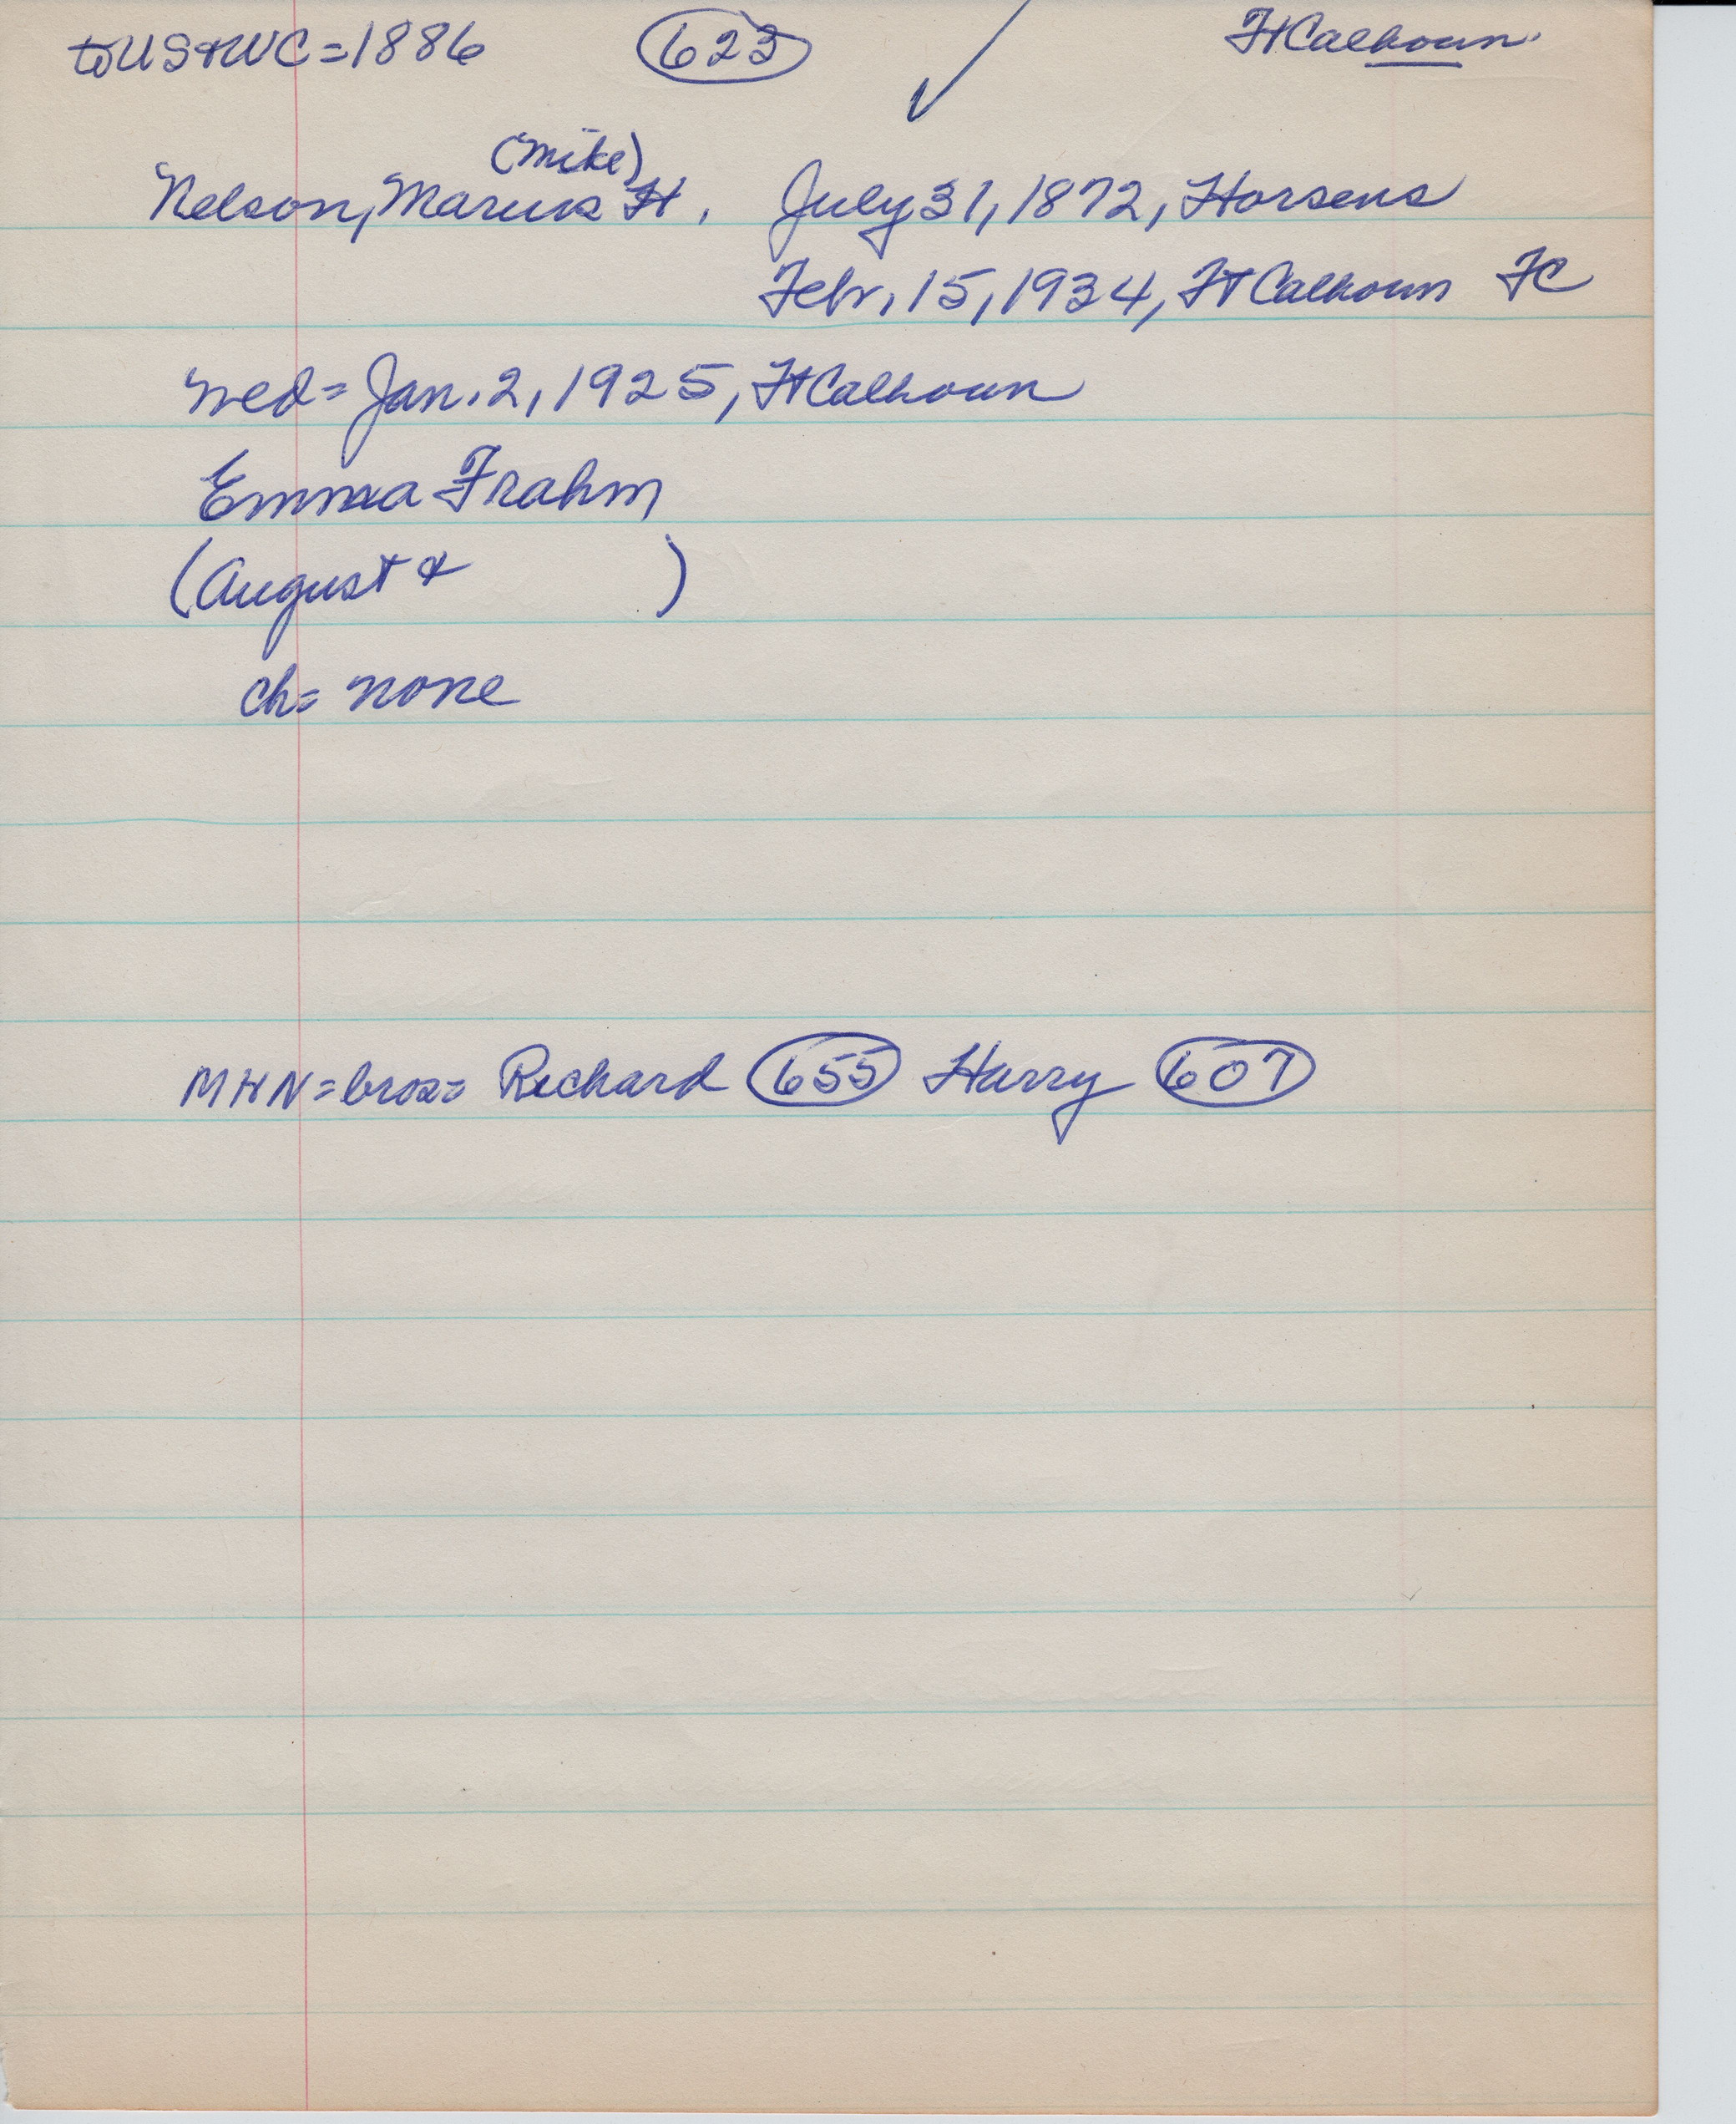 to US & WC = 1886 623 Ft Calhoun
(Mike)
Nelson, Marius H. July 31, 1872, Horsens
Febr. 15, 1934, Ft Calhoun FC
wed = Jan. 2, 1925, Ft Calhoun
Emma Frahm
(August & )
ch= none
MHN = bros= Richard 655 Harry 607